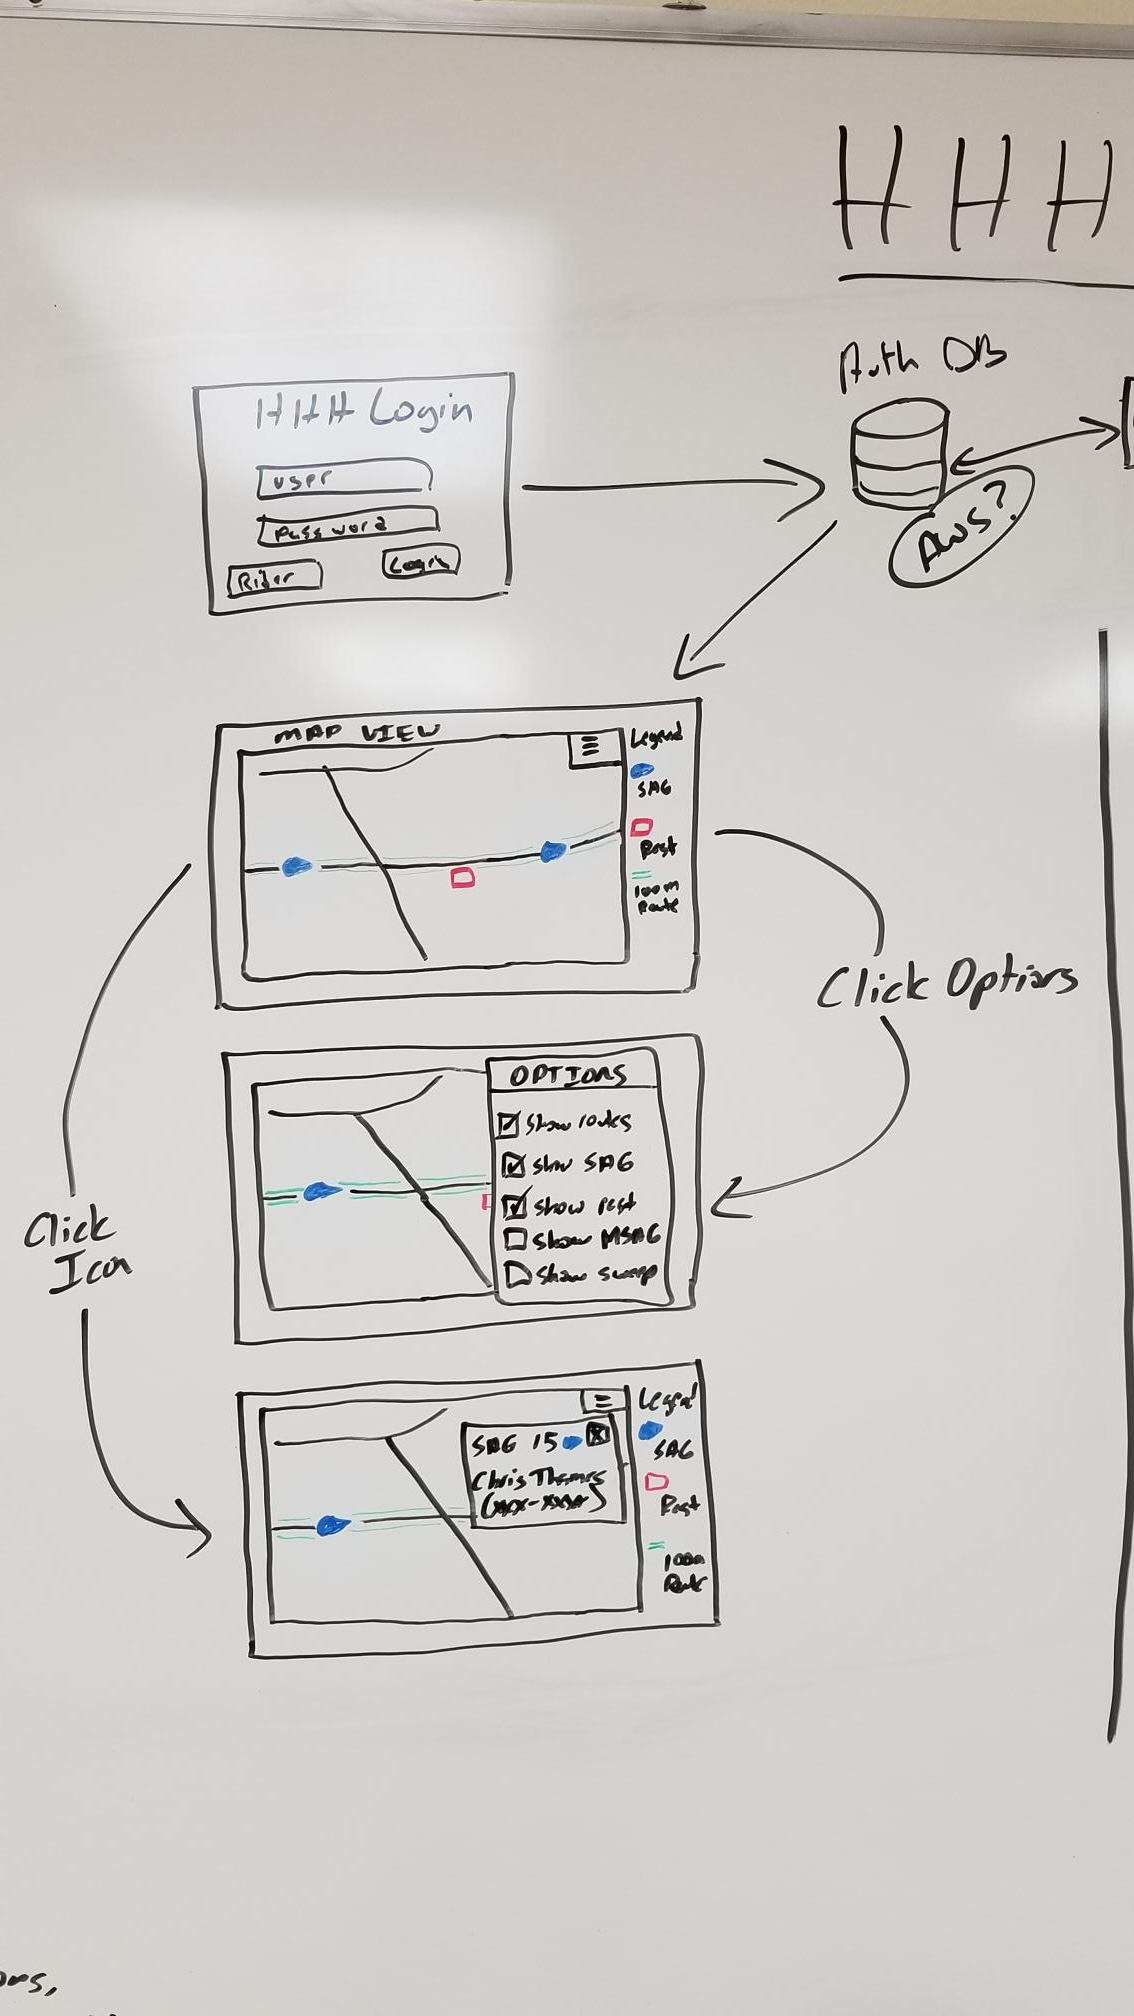 HHH
Auth DB
AWS?
HHH Login
user
Password
Rider
Login
MAP VIEW
Legend
SAG
Rest
100m
Route
Click Options
OPTIONS
Show routes
Show SAG
Show rest
Show MSAG
Show sweep
Click
Icon
Legend
SAG
Rest
100m
Route
SAG 15
X
Chris Thames
(xxx-xxxx)